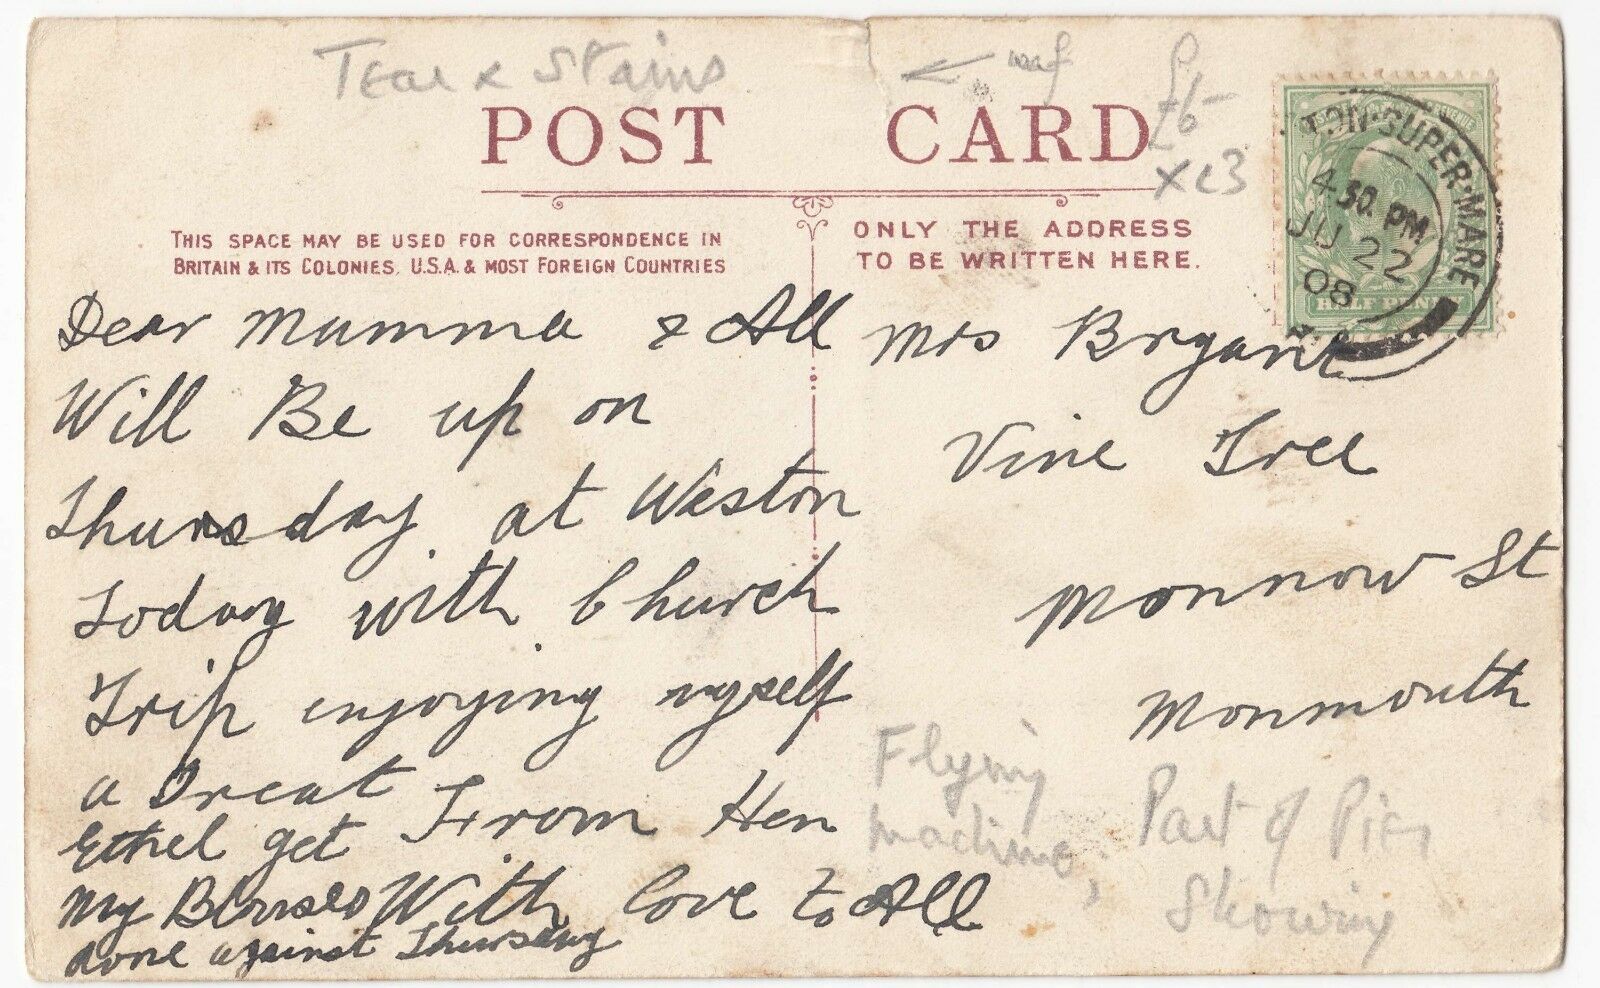 Tear & Stains
£6-
x c3
POST CARD
THIS SPACE MAY BE USED FOR CORRESPONDENCE IN
BRITAIN & ITS COLONIES, U.S.A. & MOST FOREIGN COUNTRIES
ONLY THE ADDRESS
TO BE WRITTEN HERE.
TON-SUPER-MARE
4 30. PM
JU 22
08
HALF PENNY
Dear Mumma & All
Will Be up on
Thursday at Weston
Today with Church
Trip enjoying myself
a Treat From Hen
Ethel get
my Blouses With love to All
done against Thursday
Mrs Bryant
Vine Tree
Monnow St
Monmouth
Flying
machine,
Part of Pier
Showing